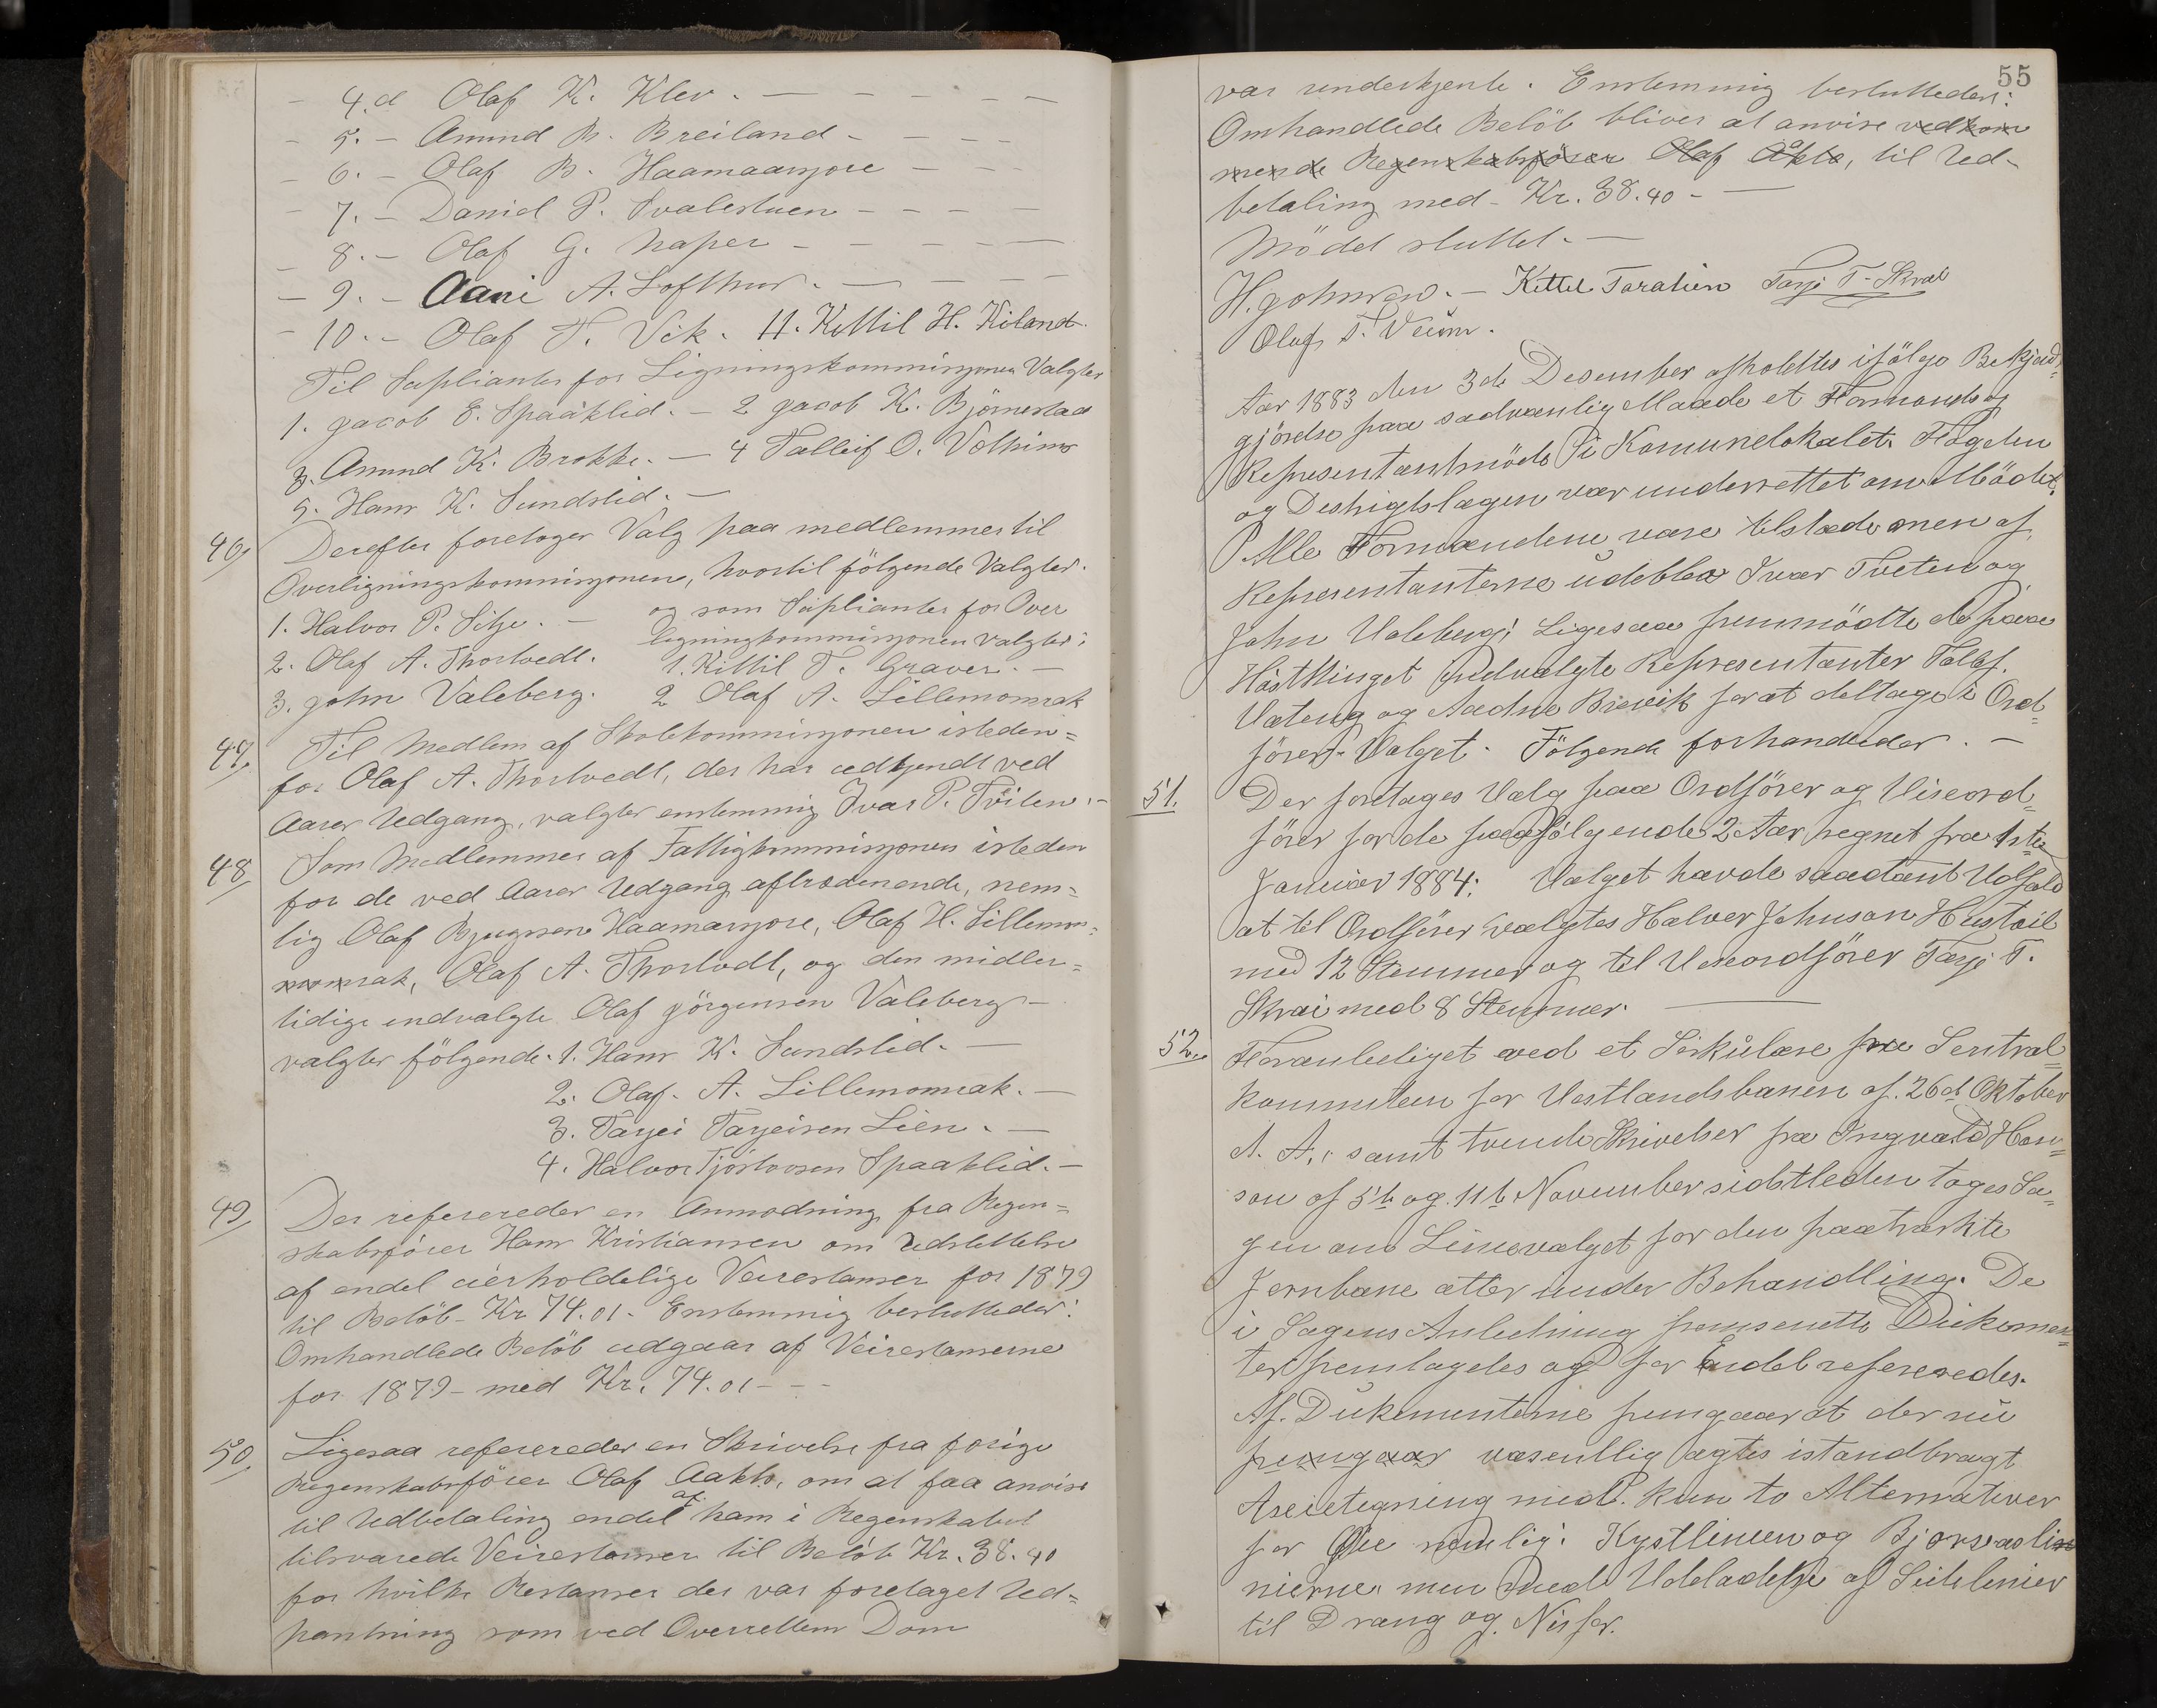 4.d Olaf K. Klev. — — — — —
5. – Amund B. Breiland – — —
6. – Olaf B. Haamaarsjore — — —
7. – Daniel P. Svalestuen – — — —
8. – Olaf G. Naper – — — —
– 9. – Aani A. Lofthus. — — — —
– 10. – Olaf T. Vik. 11. Kittil H. Kiland.
Til Suplianter for Ligningskommisjonen Valgtes
1. Jacob E. Spaaklid. – 2 Jacob K. Björnestad
3. Amund K. Brokke. – 4 Talleif O. Votheim
5. Hans K. Sundslid. –
46/ Derefter foretoges Valg paa medlemmer til
Overligningskommisjonen, hvortil fölgende Valgtes.
1. Halvor P. Sitje. – og som Suplianter for Over
2. Olaf A. Thortvedt. ligningkommisjonen valgtes:
3. John Valeberg. 1. Kittil T. Graver. –
2 Olaf A. Lillemonrak
47/ Til Medlem af Skolekommisjonen isteden=
for Olaf A. Thortvedt, der har udtjendt ved
Aarets Udgang, valgtes enstemmig Ivar P. Tveiten. –
48/ Som Medlemmer af Fattigkommisjonen isteden
for de ved Aarets Udgang aftrædenende, nem=
lig Olaf Bjugsen Haamarsjore, Olaf H. Lillemon=
monrak, Olaf A. Thortvedt, og den midler=
tidige endvalgte Olaf Jörgensen Valeberg –
valgtes fölgende. 1. Hans K. Sundslid. —
2. Olaf. A. Lillemonrak. –
3. Tarjei Tarjeisen Lien. –
4. Halvor Tjöstovsen Spaaklid. –
49/ Der refereredes en Anmodning fra Regen=
skabsförer Hans Kristiansen om Udslettelse
af endel uerholdelige Veirestanser for 1879
til Belöb – Kr 74.01 – Enstemmig besluttedes:
Omhandlede Belöb udgaar af Veirestanserne
for 1879 – med Kr. 74.01 – – –
50/ Ligesaa refereredes en Skrivelse fra forige
Regenskabsförer Olaf Aakte, om at faa anvist
til Udbetaling endel af ham i Regenskabet
tilsvarede Veirestanser til Belöb Kr. 38.40
for hvilke Restanser der var foretaget Ud=
pantning som ved Overrettens Dom
55
var underkjente. Enstemmig besluttedes:
Omhandlede Belöb bliver at anvise vedkom
mende Regenskabsförer Olaf Åkte, til Ud-
betaling med – Kr. 38.40 – —
Mödet sluttet. —
H Johnsen. – Kittel Taraldlien Tarje T. Skrai
Olaf T. Veum.
Aar 1883 den 3de Desember afholdtes ifölge Bekjend=
gjörelse paa sædvanlig Maade et Formands og
Representantmöde i Komunelokalet. Fogden
og Destrigtslægen var underrettet om Mödet.
Alle Formændene vare tilstæde men af
Representanterne udeblev Ivar Tveten og
John Valeberg. Ligesaa fremmödte de paa
Höstthinget indvalgte Representanter Tallef.
Vateng og Aadne Breivik for at deltage i Ord=
förer-Valget. Fölgende forhandledes. —
51. Der foretages Valg paa Ordförer og Viseord=
förer for de paafölgende 2 Aar, regnet fra 1ste
Januar 1884: Valget havde saadant Udfald
at til Ordförer valgtes Halver Johnson Hustveit
med 12 Stemmer og til Viseordförer Tarje T.
Skrai med 8 Stemmer. —
52. Foranlediget ved et Sirkulære fra Sentral=
komniteen for Vestlandsbanen af. 26d Oktober
d. A., samt tvende Skrivelser fra Ingvald Han=
son af 5te og. 11te November sidstleden toges Sa=
gen om Linievalget for den paatænkte
Jernbane atter under Behandling. De
i Sagens Anledning fremsendte Dukomen=
ter fremlagdes og for Endel refereredes.
Af. Dukumenterne fremgaar at der nu
fremgaar væsentlig agtes istandbragt
Aksietegning med kun to Alternativer
for Øie nemlig: Kystlinien og Bjorvasli
nierne. men med Udeladelse af Sidelinier
til Drang og. Nisser.